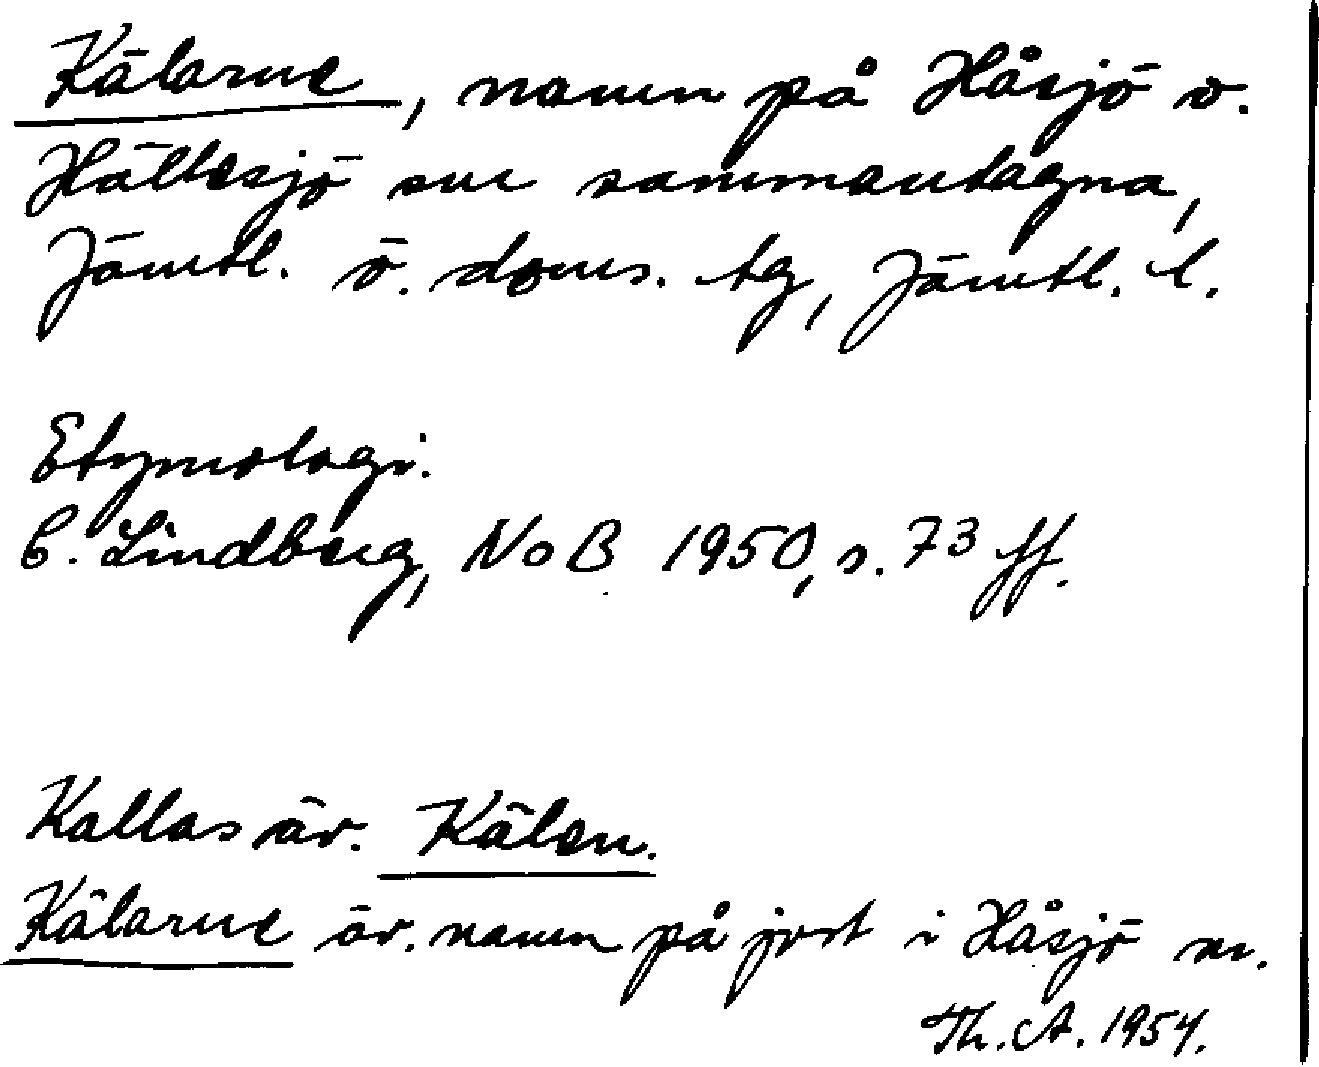 Kälarne, namn på Håsjö o.
Hällesjö snr sammantagna,
Jämtl. ö. doms. tg, Jämtl. l.
Etymologi.
C. Lindberg, NoB 1950, s. 73 ff.
Kallas äv. Kälen.
Kälarne äv. namn på jvst i Håsjö sn.
Th. A. 1954.